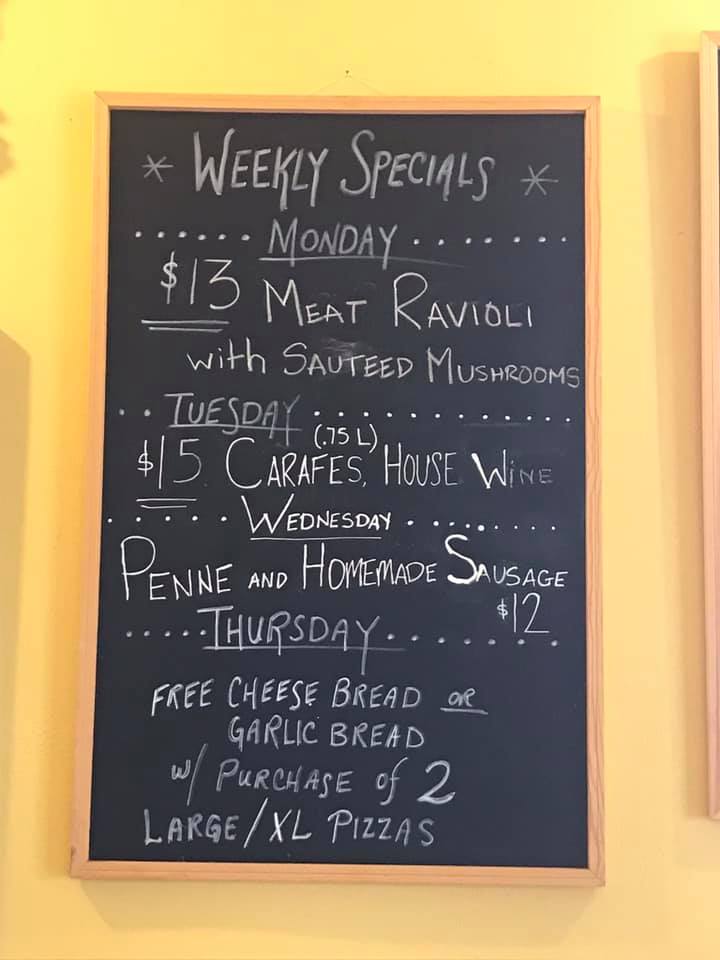 * WEEKLY SPECIALS *
...... MONDAY .......
$13 MEAT RAVIOLI
with SAUTEED MUSHROOMS
.. TUESDAY .............
(.75 L)
$15 CARAFES, HOUSE WINE
..... WEDNESDAY ........
PENNE AND HOMEMADE SAUSAGE
$12
..... THURSDAY ........
FREE CHEESE BREAD OR
GARLIC BREAD
w/ PURCHASE of 2
LARGE/XL PIZZAS